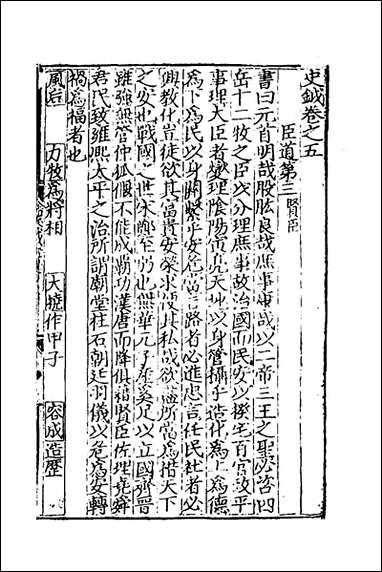 史鉞卷之五
臣道第三 賢臣
書曰元首明哉股肱良哉庶事康哉以二帝三王之聖必咨四
岳十二牧之臣以分理庶事故治國而民安以揆宅百官敘平
事理大臣者燮理陰陽寅亮天地以身管攝乎造化為上為德
為下為民以身關繫乎安危當言路者必進忠言任民社者必
興教化豈徒欲其富貴安榮求便其私哉欲盡所當為措天下
之安也戰國之世宋鄭至弱也無華元子產奚足以立國齊晉
雖強無管仲狐偃不能成霸功漢唐而降俱藉賢臣佐理堯舜
君民致雍熙太平之治所謂廟堂柱石朝廷羽儀以危為安轉
禍為福者也
風后 力牧為將相 大撓作甲子 容成造曆